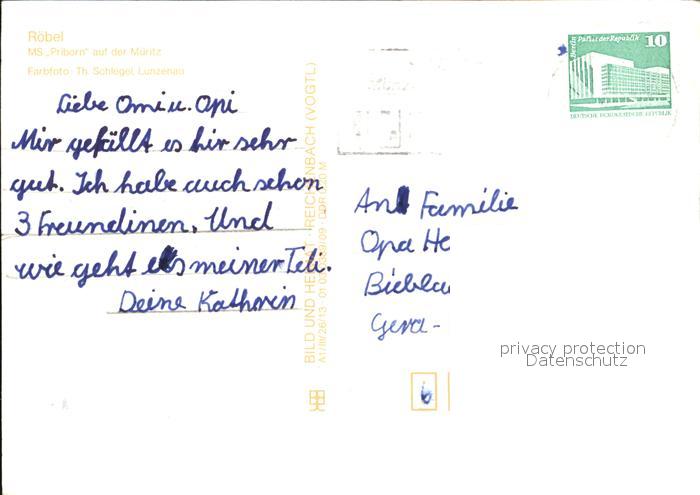 Röbel
MS „Priborn" auf der Müritz
Farbfoto: Th. Schlegel, Lunzenau
Liebe Omi u. Opi
Mir gefällt es hir sehr
gut. Ich habe auch schon
3 Freundinen. Und
wie geht es meiner Teli.
Deine Kathrin
BILD UND HEIMAT REICHENBACH (VOGTL)
A1/III/26/13
Berlin Palast der Republik 10
DEUTSCHE DEMOKRATISCHE REPUBLIK
An Familie
Opa He
Bieblac
Gera-
privacy protection
Datenschutz
6